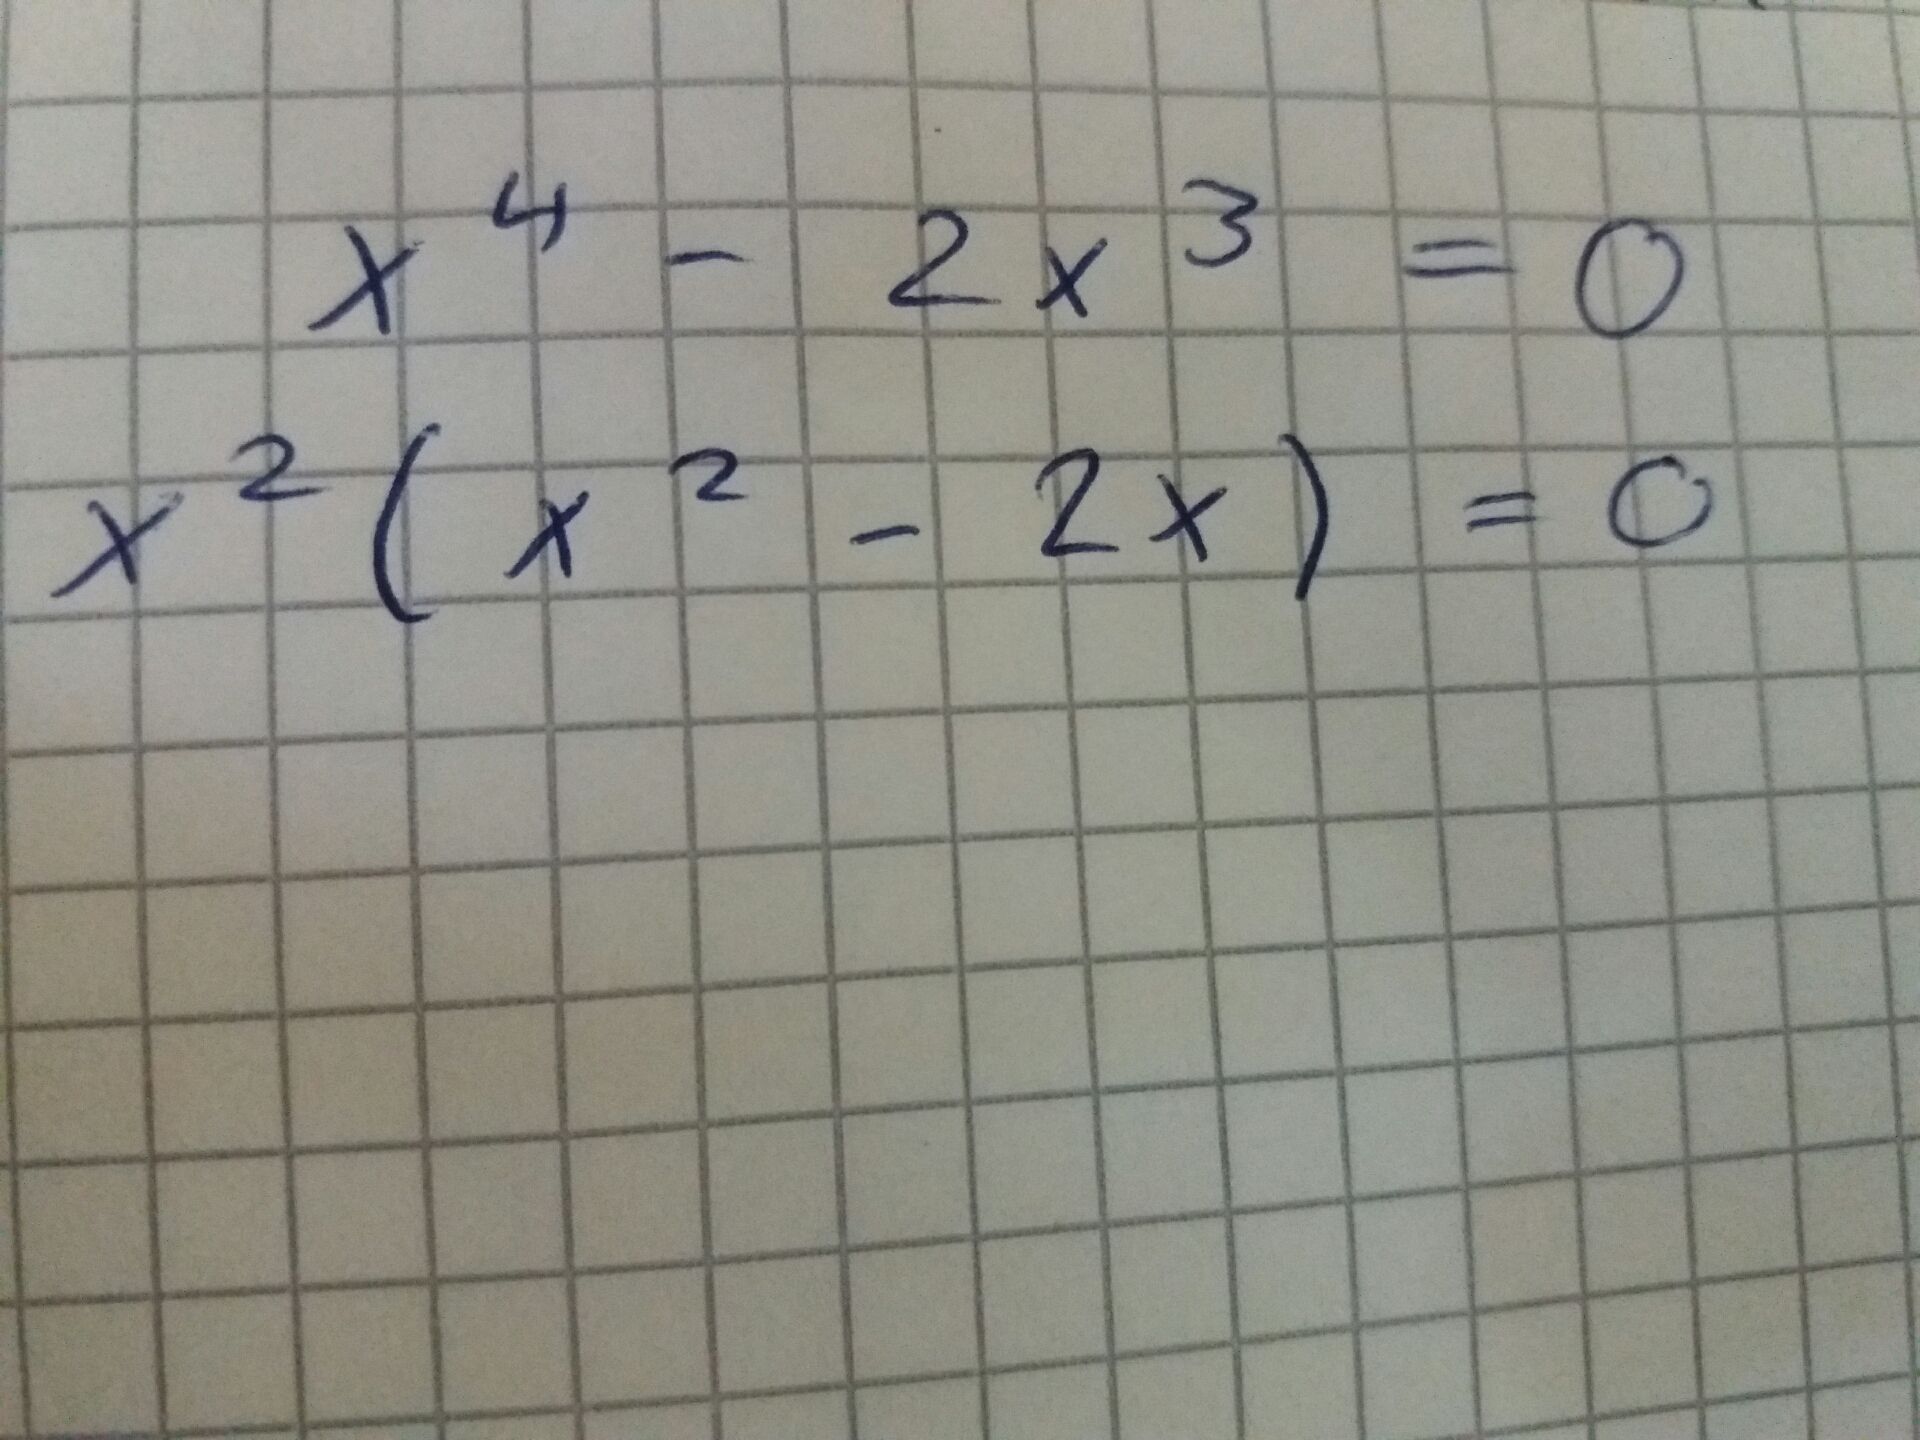 x⁴ - 2x³ = 0
x² ( x² - 2x ) = 0